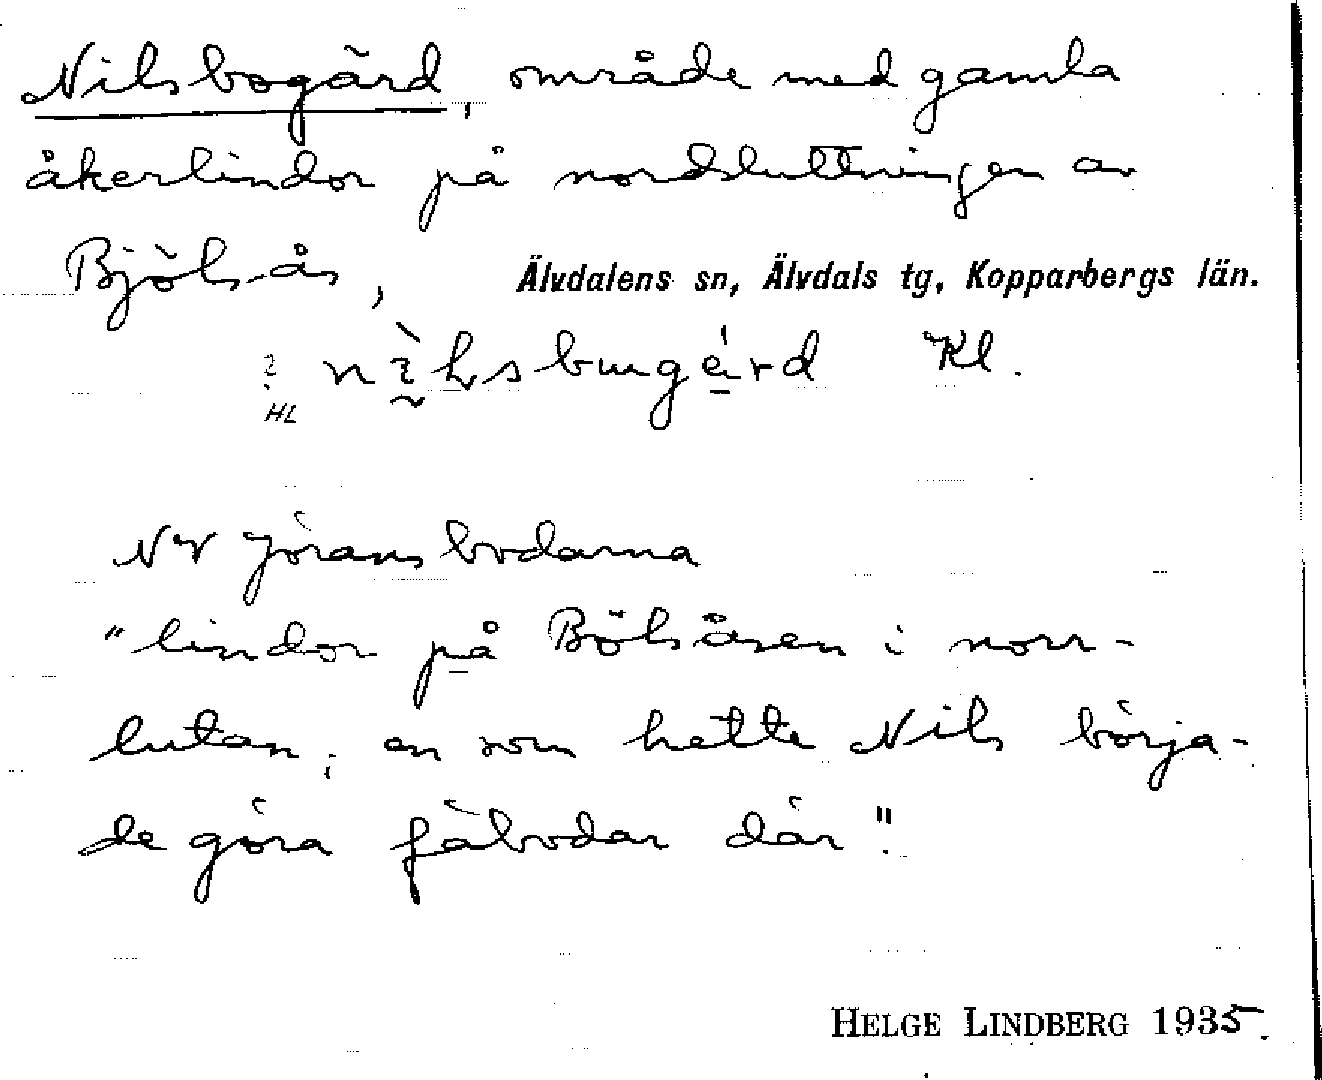 Nilsbogärd, område med gamla
åkerlindor på nordsluttningen av
Bjölsås, Älvdalens sn, Älvdals tg, Kopparbergs län.
Kl.
HL
NV Jöransbodarna
"lindor på Bölsåsen i norr-
lutan; en som hette Nils börja-
de göra fäbodar där".
HELGE LINDBERG 1935.